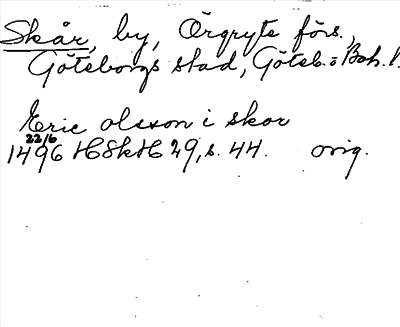 Skår, by, Örgryte förs.,
Göteborgs stad, Göteb. o Boh. l.
Eric olsson i skor
22/6
1496 HSkH 29, s. 44. orig.